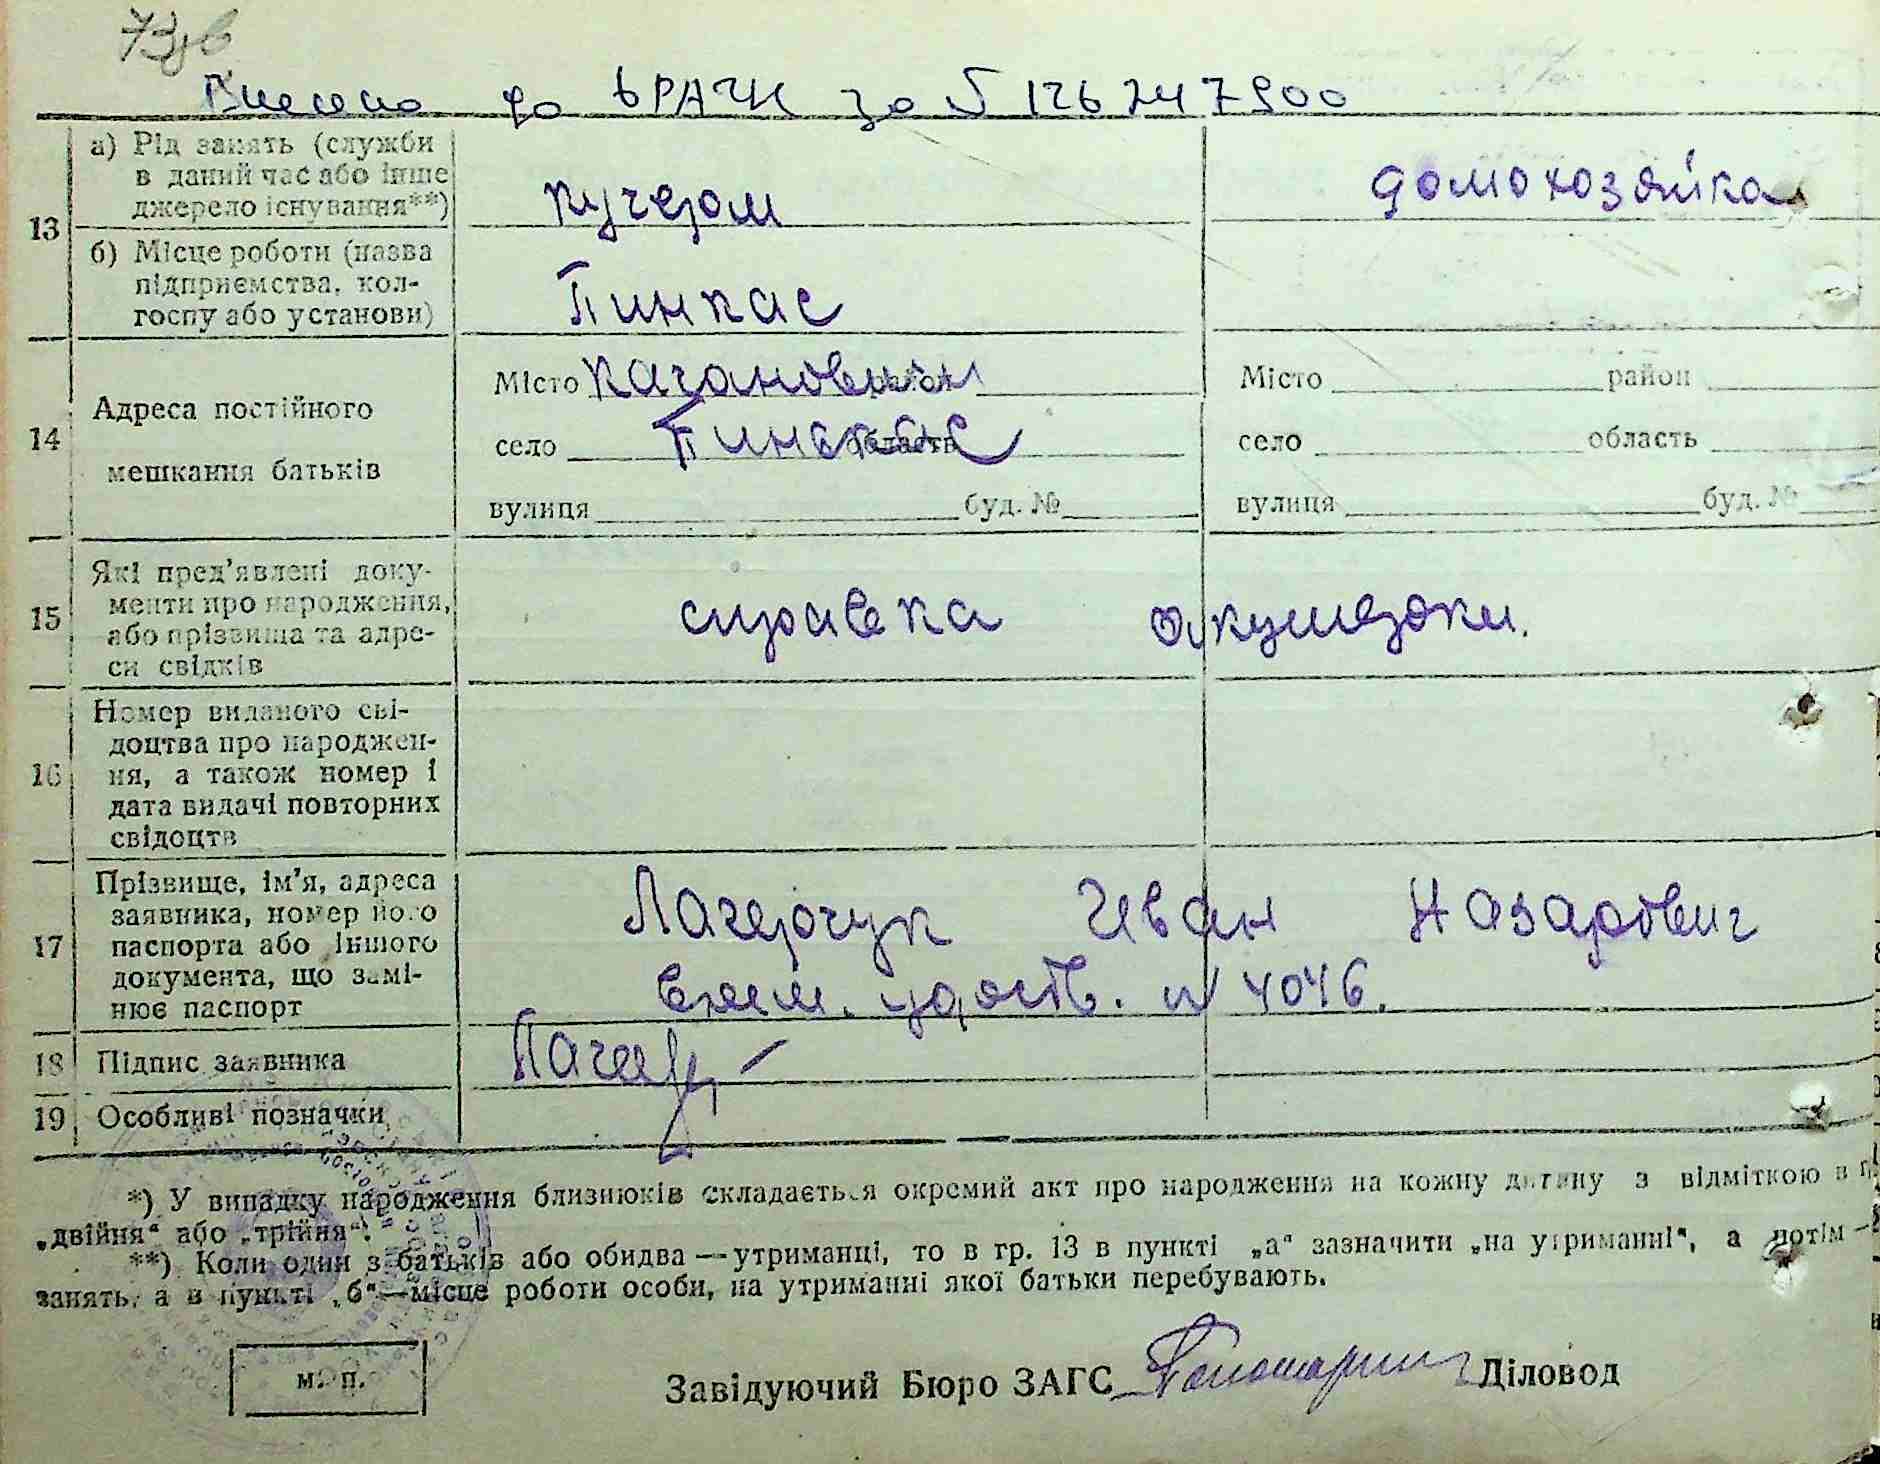 73зв
Внесено до ДРАЦС за № 126247900
13 а) Рід занять (служби в даний час або інше джерело існування**)
кучером
домохозяйка
б) Місце роботи (назва підприємства, колгоспу або установи)
Пинкас
14 Адреса постійного мешкання батьків
Місто Каганович район
село Пинькас область
вулиця буд. №
Місто район
село область
вулиця буд. №
15 Які пред'явлені доку-
менти про народження,
або прізвища та адре-
си свідків
справка акушерки.
16 Номер виданого сві-
доцтва про народжен-
ня, а також номер і
дата видачі повторних
свідоцтв
17 Прізвище, ім'я, адреса
заявника, номер його
паспорта або іншого
документа, що замі-
нює паспорт
Лагерчук Иван Назарович
врем. удоств. № 4046.
18 Підпис заявника
Лагер
19 Особливі позначки
*) У випадку народження близнюків складається окремий акт про народження на кожну дитину з відміткою в
„двійня“ або „трійня“.
**) Коли один з батьків або обидва — утриманці, то в гр. 13 в пункті „а“ зазначити „на утриманні“, а потім —
занять, а в пункті „б“ — місце роботи особи, на утриманні якої батьки перебувають.
м. п.
Завідуючий Бюро ЗАГС Діловод